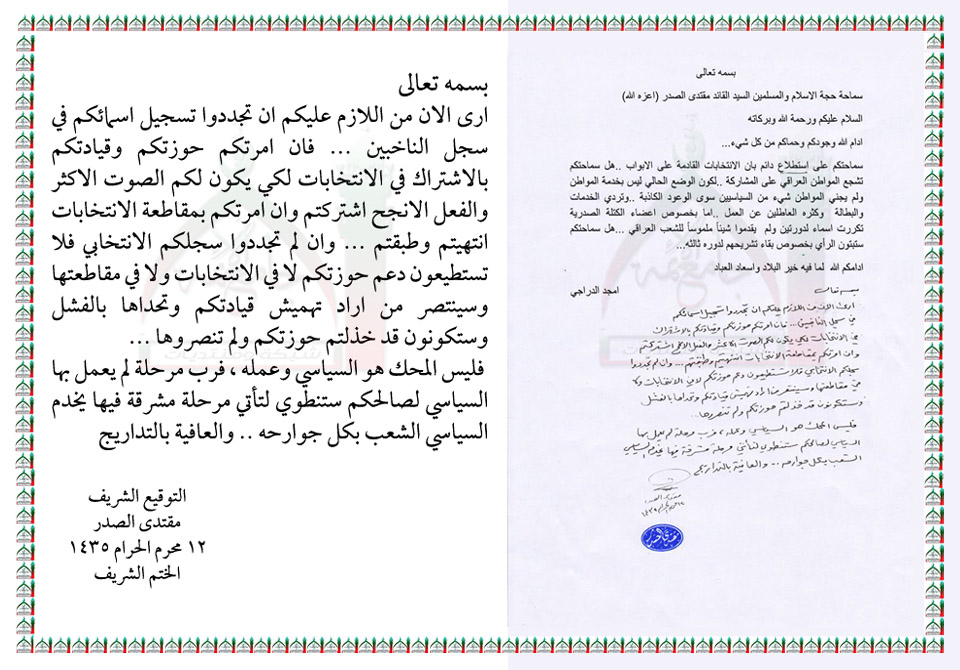 بسمه تعالى
سماحة حجة الاسلام والمسلمين السيد القائد مقتدى الصدر (اعزه الله)
السلام عليكم ورحمة الله وبركاته
ادام الله وجودكم وحماكم من كل شيء...
سماحتكم على إستطلاع دائم بان الانتخابات القادمة على الابواب ..هل سماحتكم
تشجع المواطن العراقي على المشاركة ..لكون الوضع الحالي ليس بخدمة المواطن
ولم يجني المواطن شيء من السياسيين سوى الوعود الكاذبة ..وتردي الخدمات
والبطالة وكثره العاطلين عن العمل ..اما بخصوص اعضاء الكتلة الصدرية
تكررت اسماء لدورتين ولم يقدموا شيئاً ملموساً للشعب العراقي ...هل سماحتكم
ستبتون الرأي بخصوص بقاء تشريحهم لدوره ثالثه...
ادامكم الله لما فيه خير البلاد واسعاد العباد
امجد الدراجي
بسمه تعالى
ارى الان من اللازم عليكم ان تجددوا تسجيل اسمائكم
في سجل الناخبين ... فان امرتكم حوزتكم وقيادتكم بالاشتراك
في الانتخابات لكي يكون لكم الصوت الاكثر والفعل الانجح اشتركتم
وان امرتكم بمقاطعة الانتخابات انتهيتم وطبقتم ... وان لم تجددوا
سجلكم الانتخابي فلا تستطيعون دعم حوزتكم لا في الانتخابات ولا
في مقاطعتها وسينتصر من اراد تهميش قيادتكم وتحداها بالفشل
وستكونون قد خذلتم حوزتكم ولم تنصروها ...
فليس المحك هو السياسي وعمله ، فرب مرحلة لم يعمل بها
السياسي لصالحكم ستنطوي لتأتي مرحلة مشرقة فيها يخدم السياسي
الشعب بكل جوارحه .. والعافية بالتداريج
مقتدى الصدر
بسمه تعالى
ارى الان من اللازم عليكم ان تجددوا تسجيل اسمائكم في
سجل الناخبين ... فان امرتكم حوزتكم وقيادتكم
بالاشتراك في الانتخابات لكي يكون لكم الصوت الاكثر
والفعل الانجح اشتركتم وان امرتكم بمقاطعة الانتخابات
انتهيتم وطبقتم ... وان لم تجددوا سجلكم الانتخابي فلا
تستطيعون دعم حوزتكم لا في الانتخابات ولا في مقاطعتها
وسينتصر من اراد تهميش قيادتكم وتحداها بالفشل
وستكونون قد خذلتم حوزتكم ولم تنصروها ...
فليس المحك هو السياسي وعمله ، فرب مرحلة لم يعمل بها
السياسي لصالحكم ستنطوي لتأتي مرحلة مشرقة فيها يخدم
السياسي الشعب بكل جوارحه .. والعافية بالتداريج
التوقيع الشريف
مقتدى الصدر
١٢ محرم الحرام ١٤٣٥
الختم الشريف